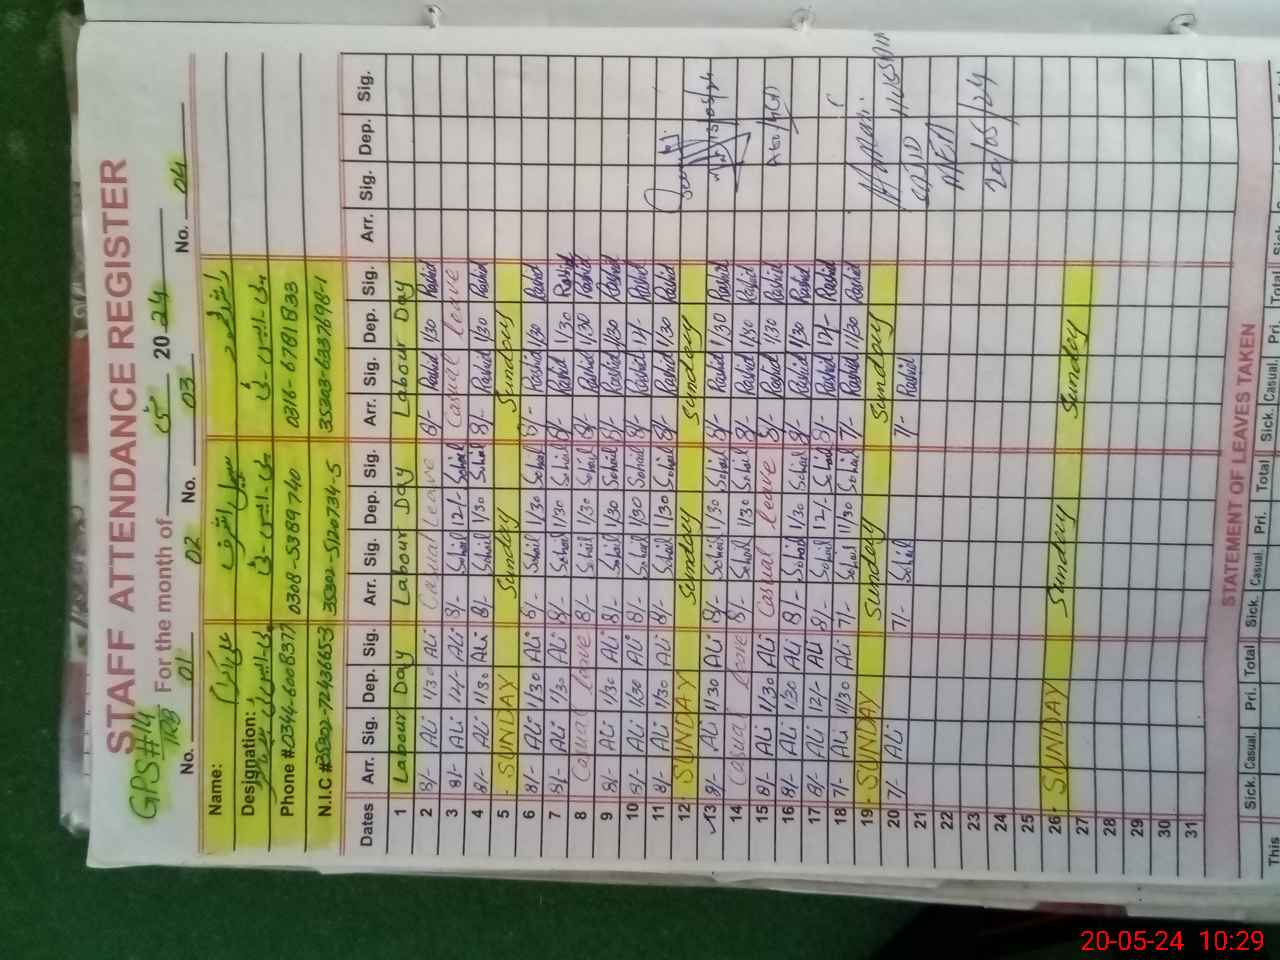 STAFF ATTENDANCE REGISTER
GPS#14
TRB
For the month of ۵ 20 24
No. 01 No. 02 No. 03 No. 04
Name: علی اکرام سہیل اشرف راشد محمود
Designation: پی۔ایس۔ٹی پی۔ایس۔ٹی
Phone # 0344-6008377 0308-5389740 0316-6781833
N.I.C # 35302-7243665-3 35302-5120734-5 35303-6337698-1
Dates Arr. Sig. Dep. Sig. Arr. Sig. Dep. Sig. Arr. Sig. Dep. Sig. Arr. Sig. Dep. Sig.
1 Labour Day Labour Day Labour Day
2 8/- Ali 1/30 Ali Casual Leave 8/- Rashid 1/30 Rashid
3 8/- Ali 12/- Ali 8/- Sohail 12/- Sohail Casual leave
4 8/- Ali 1/30 Ali 8/- Sohail 1/30 Sohail 8/- Rashid 1/30 Rashid
5 SUNDAY Sunday Sunday
6 8/- Ali 1/30 Ali 8/- Sohail 1/30 Sohail 8/- Rashid 1/30 Rashid
7 8/- Ali 1/30 Ali 8/- Sohail 1/30 Sohail 8/- Rashid 1/30 Rashid
8 Casual leave 8/- Sohail 1/30 Sohail 8/- Rashid 1/30 Rashid
9 8/- Ali 1/30 Ali 8/- Sohail 1/30 Sohail 8/- Rashid 1/30 Rashid
10 8/- Ali 1/30 Ali 8/- Sohail 1/30 Sohail 8/- Rashid 12/- Rashid
11 8/- Ali 1/30 Ali 8/- Sohail 1/30 Sohail 8/- Rashid 1/30 Rashid
12 SUNDAY Sunday Sunday
13 8/- Ali 1/30 Ali 8/- Sohail 1/30 Sohail 8/- Rashid 1/30 Rashid 13/05/24
14 Casual leave 8/- Sohail 1/30 Sohail 8/- Rashid 1/30 Rashid
15 8/- Ali 1/30 Ali Casual leave 8/- Rashid 1/30 Rashid
16 8/- Ali 1/30 Ali 8/- Sohail 1/30 Sohail 8/- Rashid 1/30 Rashid
17 8/- Ali 12/- Ali 8/- Sohail 12/- Sohail 8/- Rashid 12/- Rashid
18 7/- Ali 11/30 Ali 7/- Sohail 11/30 Sohail 7/- Rashid 11/30 Rashid
19 SUNDAY Sunday Sunday
20 7/- Ali 7/- Sohail 7/- Rashid SAJID HUSSAIN
21
22 MEA
23
24 20/05/24
25
26 SUNDAY Sunday Sunday
27
28
29
30
31
STATEMENT OF LEAVES TAKEN
Sick. Casual. Pri. Total Sick. Casual Pri. Total Sick. Casual Pri. Total Sick.
This
20-05-24 10:29